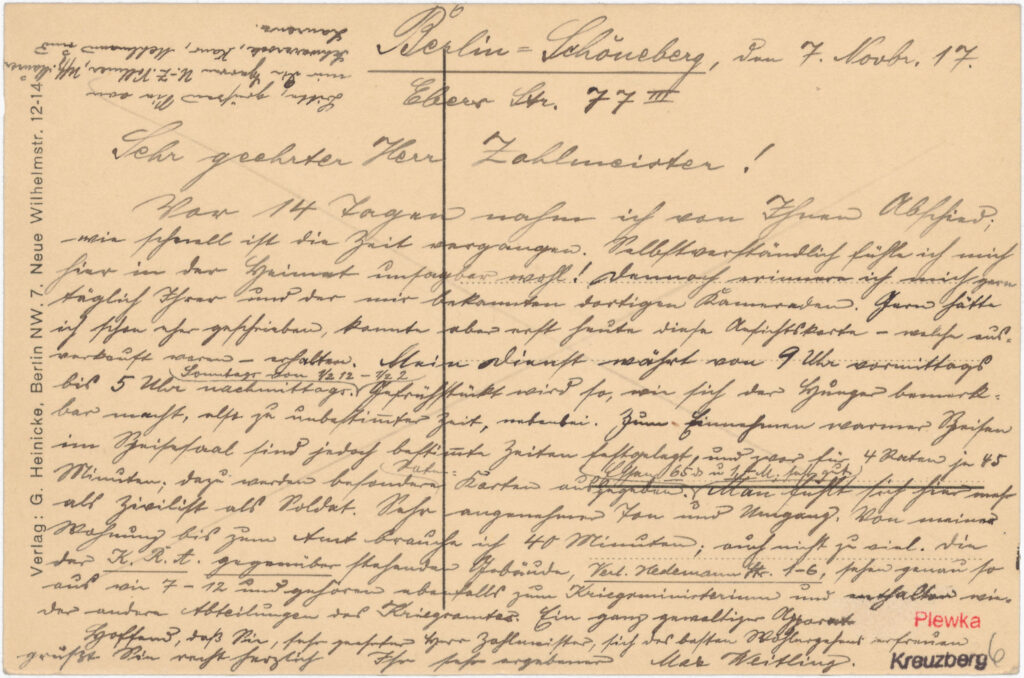 Berlin=Schöneberg, den 7. Novbr. 17.
Ebers Str. 77 III
Sehr geehrter Herr Zahlmeister!
Vor 14 Tagen nahm ich von Ihnen Abschied;
wie schnell ist die Zeit vergangen. Selbstverständlich fühle ich mich
hier in der Heimat unsagbar wohl! Dennoch erinnere ich mich gern
täglich Ihrer und der mir bekannten dortigen Kameraden. Gern hätte
ich schon eher geschrieben, konnte aber erst heute diese Ansichtskarte – welche aus-
verkauft waren – erhalten. Mein Dienst währt von 9 Uhr vormittags
bis 5 Uhr nachmittags. (Sonntags von 1/2 12 – 1/2 2) Gefrühstückt wird so, wie sich der Hunger bemerk-
bar macht, also zu unbestimmter Zeit, nebenbei. Zum Einnehmen warmer Speisen
im Speisesaal sind jedoch bestimmte Zeiten festgelegt, und zwar für 4 Raten je 45
Minuten; dazu werden besondere Raten-Karten ausgegeben. (Essen 65 u 1,- M. sehr gut) Man fühlt sich hier mehr
als Zivilist als Soldat. Sehr angenehmer Ton und Umgang. Von meiner
Wohnung bis zum Amt brauche ich 40 Minuten; auch nicht zu viel. Die
der K.R.A. gegenüber stehenden Gebäude, Verl. Hedemann Str. 1–6, sehen genau so
aus wie 7–12 und gehören ebenfalls zum Kriegsministerium und enthalten wie-
der andere Abteilungen des Kriegsamtes. Ein ganz gewaltiger Apparat
Hoffend, daß Sie, sehr geehrter Herr Zahlmeister, sich des besten Wohlergehens erfreuen
grüßt Sie recht herzlich Ihr sehr ergebener Max Weitling.
Bitte, grüßen Sie von
mir die Herren
Verlag: G. Heinicke, Berlin NW. 7. Neue Wilhelmstr. 12-14
Plewka
Kreuzberg
6
6